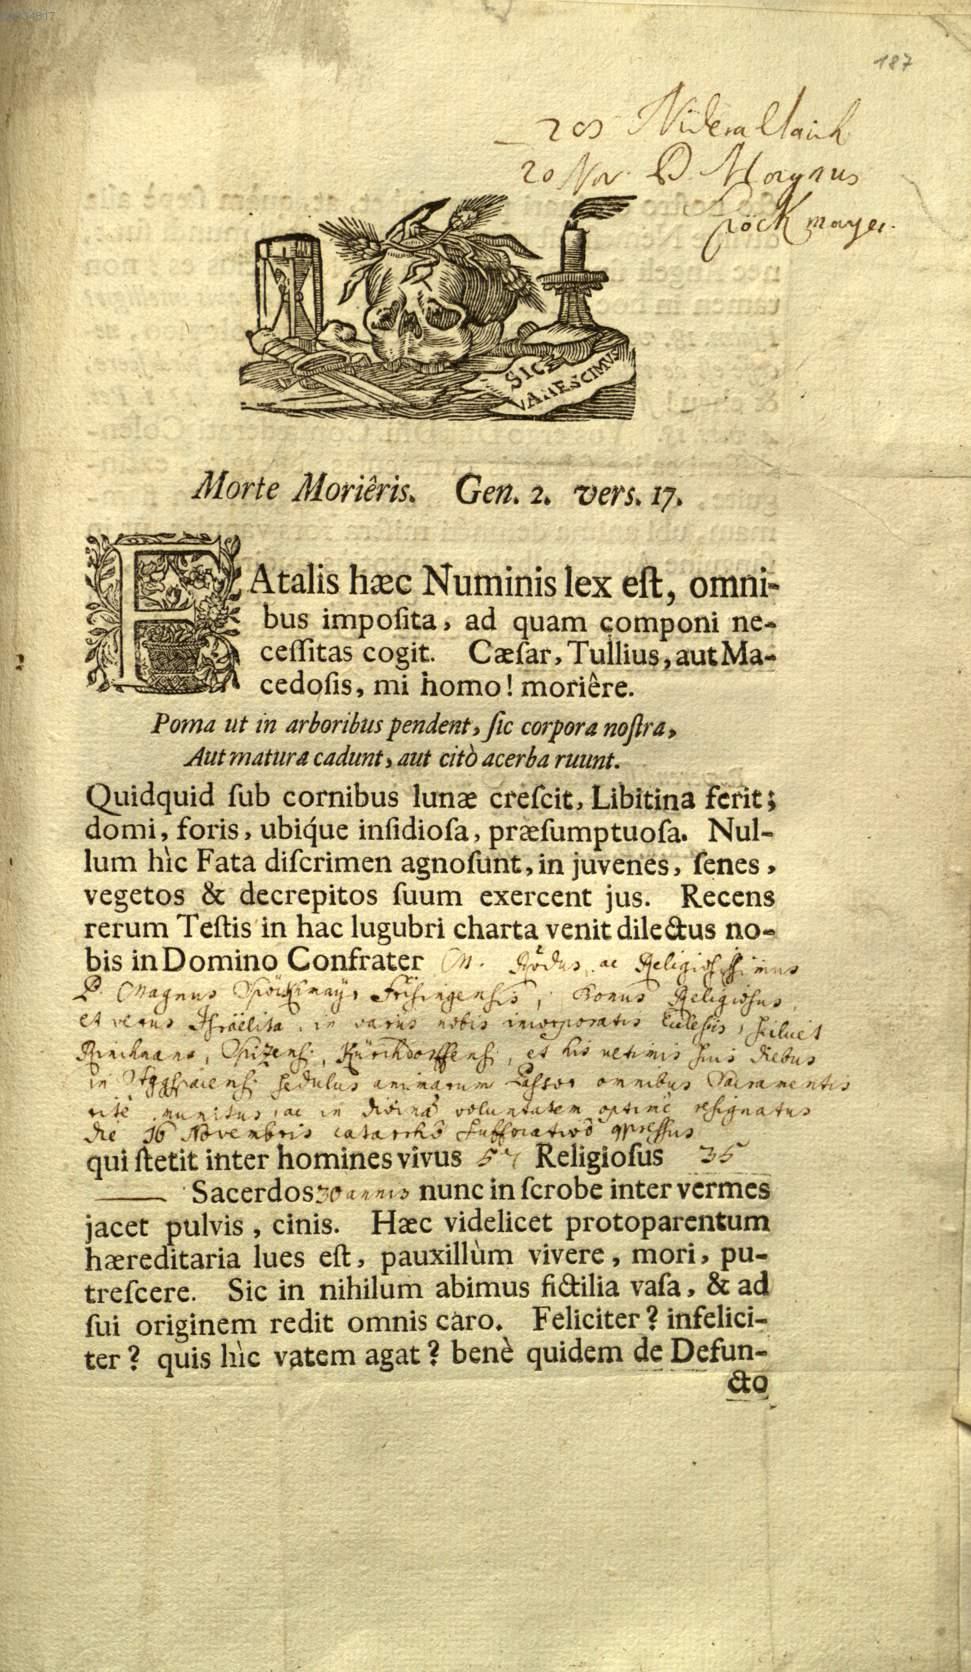 187
203 Nideraltaich
20 Nov. P. Magnus
Spöckmayr.
SIC
VANESCIMUS
Morte Moriêris. Gen. 2. vers. 17.
FAtalis hæc Numinis lex eſt, omni-
bus impoſita, ad quam componi ne-
ceſſitas cogit. Cæſar, Tullius, aut Ma-
cedoſis, mi homo! moriêre.
Poma ut in arboribus pendent, ſic corpora noſtra,
Aut matura cadunt, aut citò acerba ruunt.
Quidquid ſub cornibus lunæ creſcit, Libitina ferit;
domi, foris, ubíque inſidioſa, præſumptuoſa. Nul-
lum hìc Fata diſcrimen agnoſunt, in juvenes, ſenes,
vegetos & decrepitos ſuum exercent jus. Recens
rerum Teſtis in hac lugubri charta venit dilectus no-
bis in Domino Confrater A. Rdus ac Religiosissimus
P. Magnus Spöckmayr, Frisingensis, bonus Religiosus,
et verus Israëlita, in variis nobis incorporatis Ecclesiis, scilicet
Rinchnana, Kürchdorffensi, et his ultimis suis diebus
in sedulus animarum Pastor omnibus Sacramentis
ritè munitus, ac in divinâ voluntatem optimè resignatus
die 16 Novembris catarrhô suffocativô oppressus
qui ſtetit inter homines vivus 57 Religioſus 35
Sacerdos 30 annis nunc in ſcrobe inter vermes
jacet pulvis, cinis. Hæc videlicet protoparentum
hæreditaria lues eſt, pauxillùm vivere, mori, pu-
treſcere. Sic in nihilum abimus fictilia vaſa, & ad
ſui originem redit omnis caro. Feliciter? infelici-
ter? quis hìc vatem agat? benè quidem de Defun-
cto